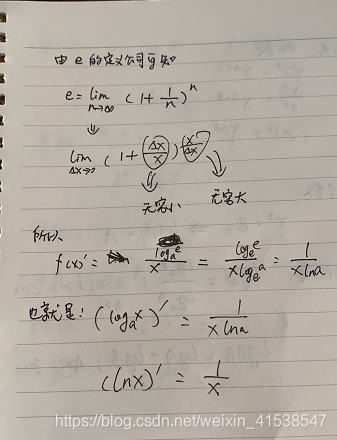 由 e 的定义公司可知
e = lim n→∞ (1 + 1/n)^n
⇓
lim Δx→0 (1 + Δx/x)^(x/Δx)
无穷小 无穷大
所以
f(x)' = log_a^e / x = log_e^e / (x log_e^a) = 1 / (x ln a)
也就是: (log_a^x)' = 1 / (x ln a)
(ln x)' = 1/x
https://blog.csdn.net/weixin_41538547